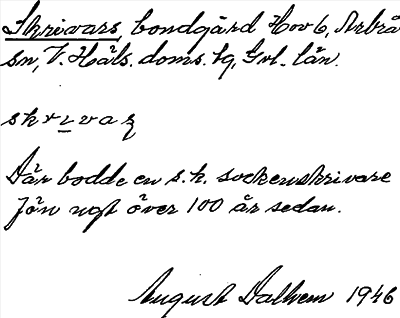 Skrivars, bondgård Hov 6, Arbrå
sn, V. Häls. doms. hg, Gvl. län.
skrivaʒ
Där bodde en s.k. sockenskrivare
för ngt över 100 år sedan.
August Dalhem 1946